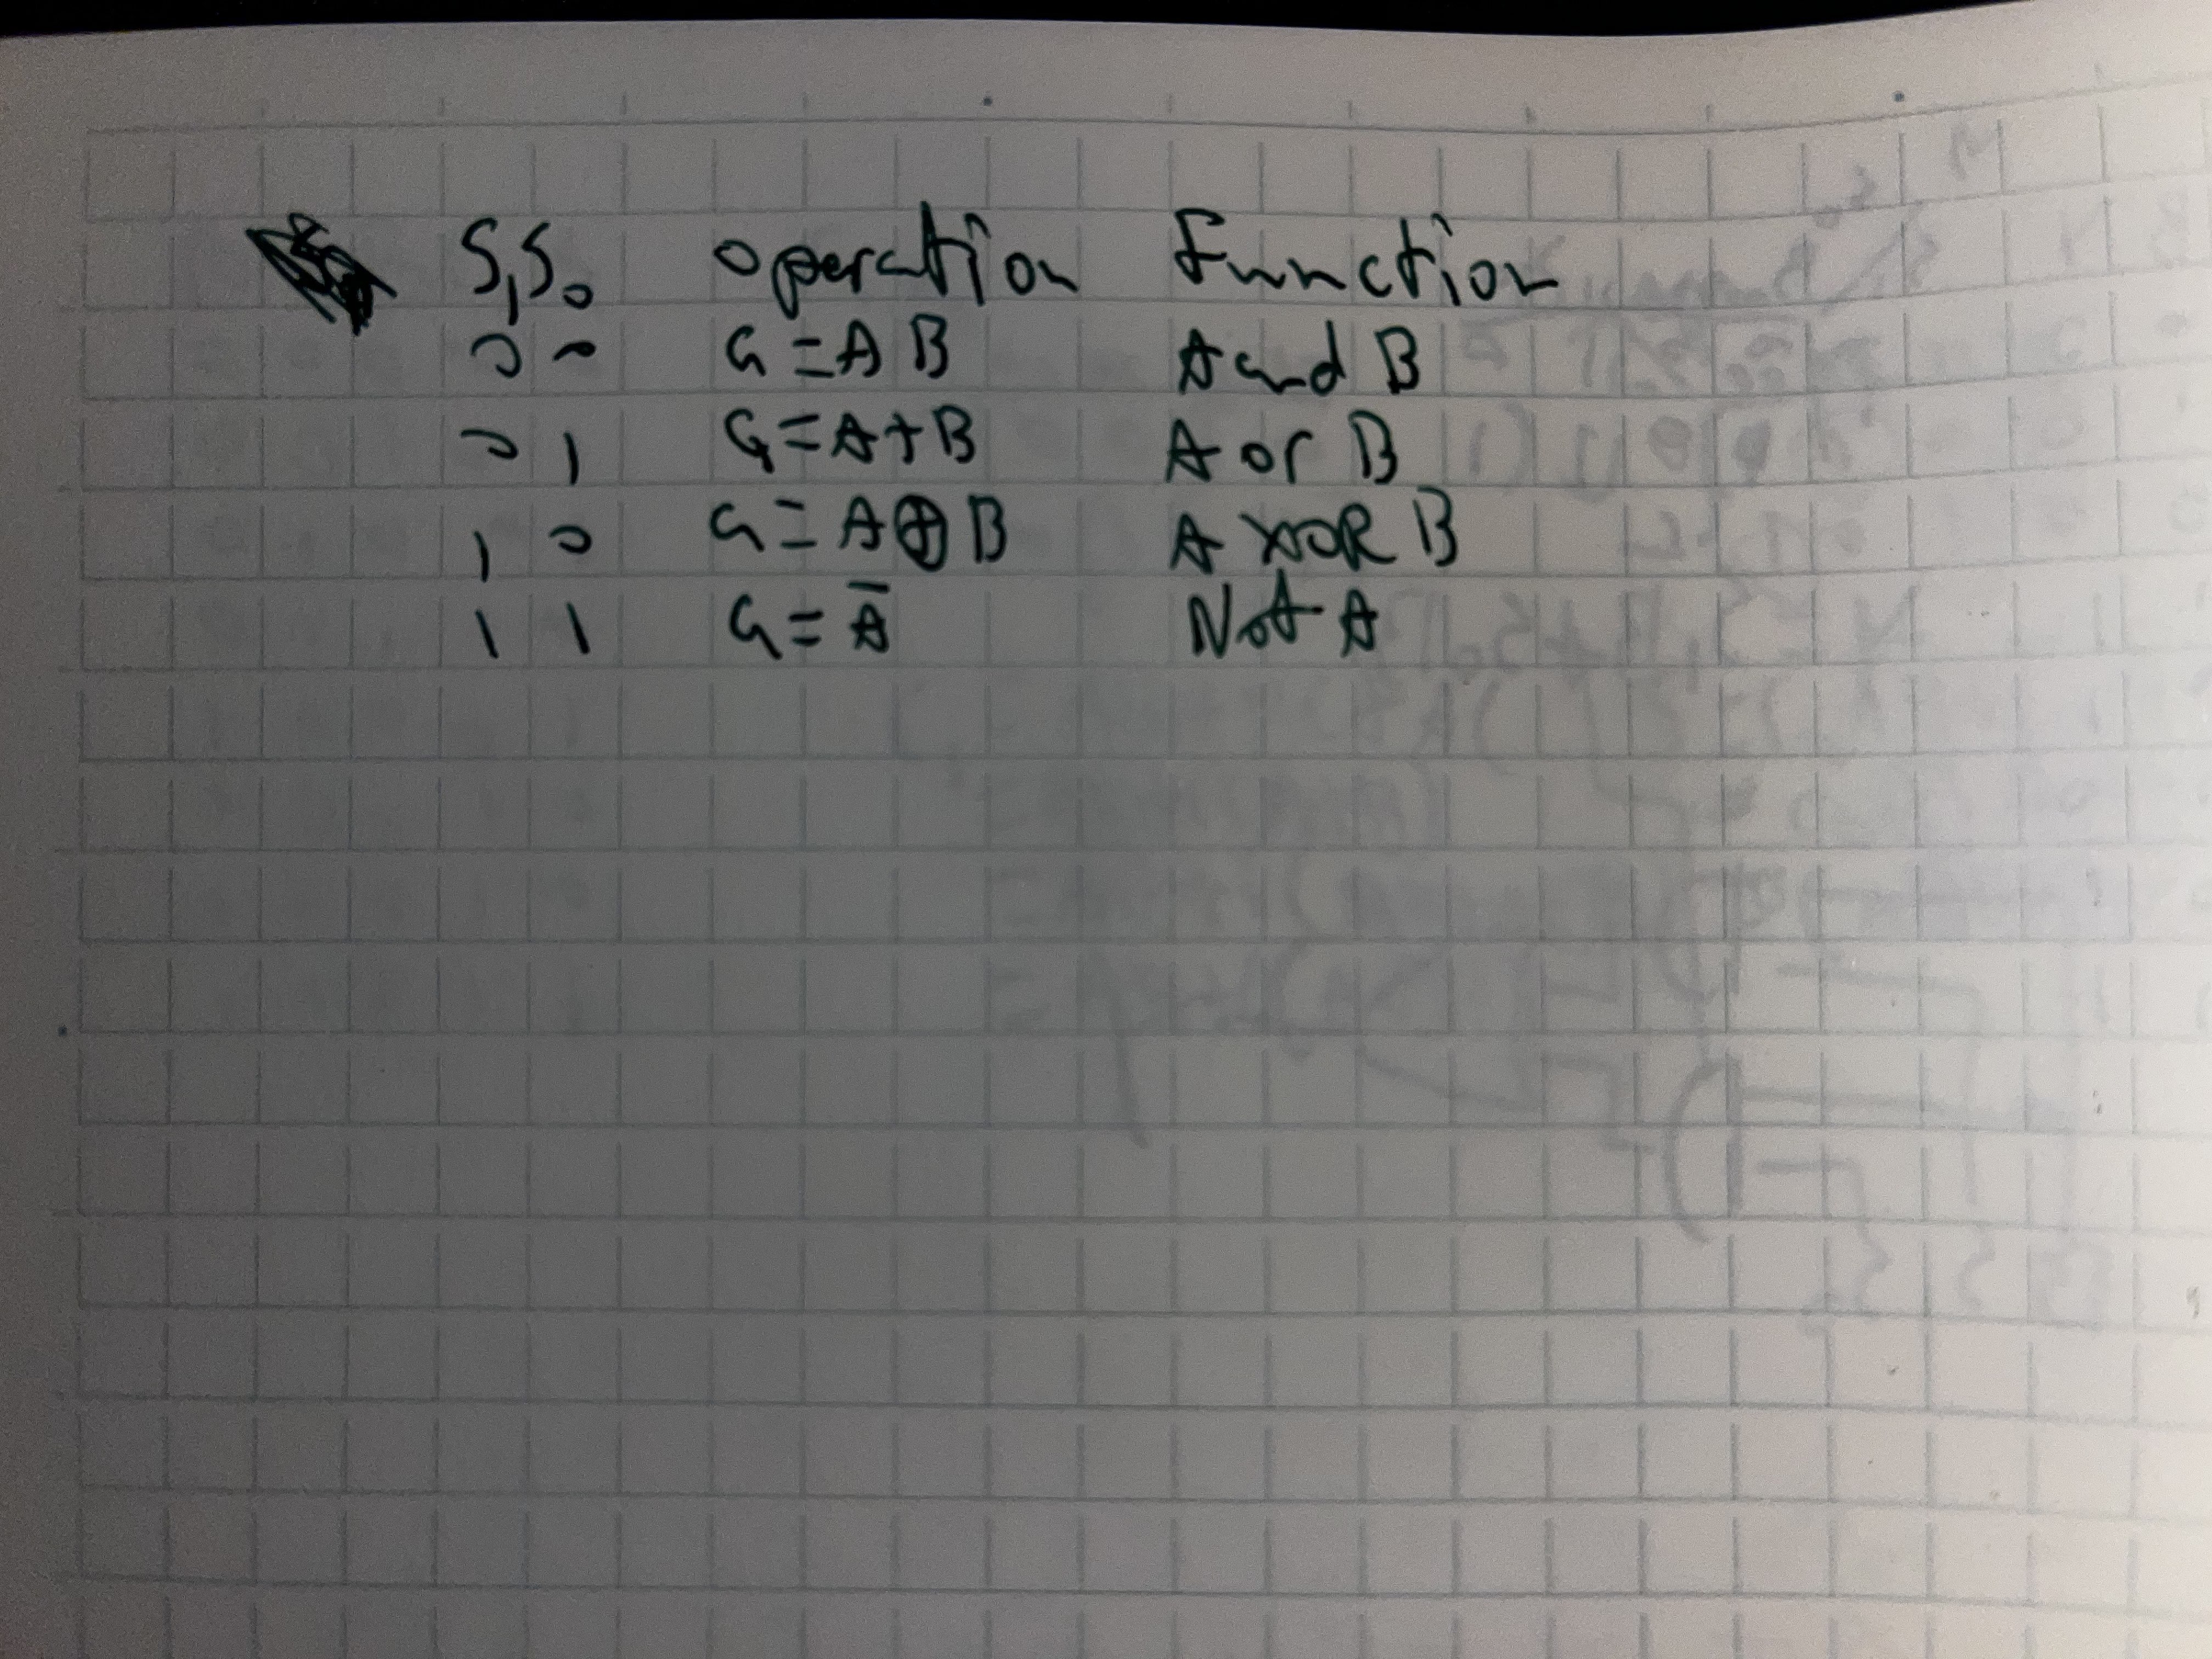 S₁S₀ operation Function
0 0 G = A B A and B
0 1 G = A + B A or B
1 0 G = A ⊕ B A XOR B
1 1 G = A̅ Not A